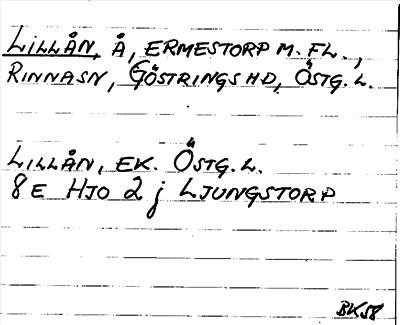 LILLÅN, Å, ERMESTORP M. FL.,
RINNASN, GÖSTRINGS HD, ÖSTG. L.
LILLÅN, EK. ÖSTG. L.
8E HJO 2j LJUNGSTORP
BK58